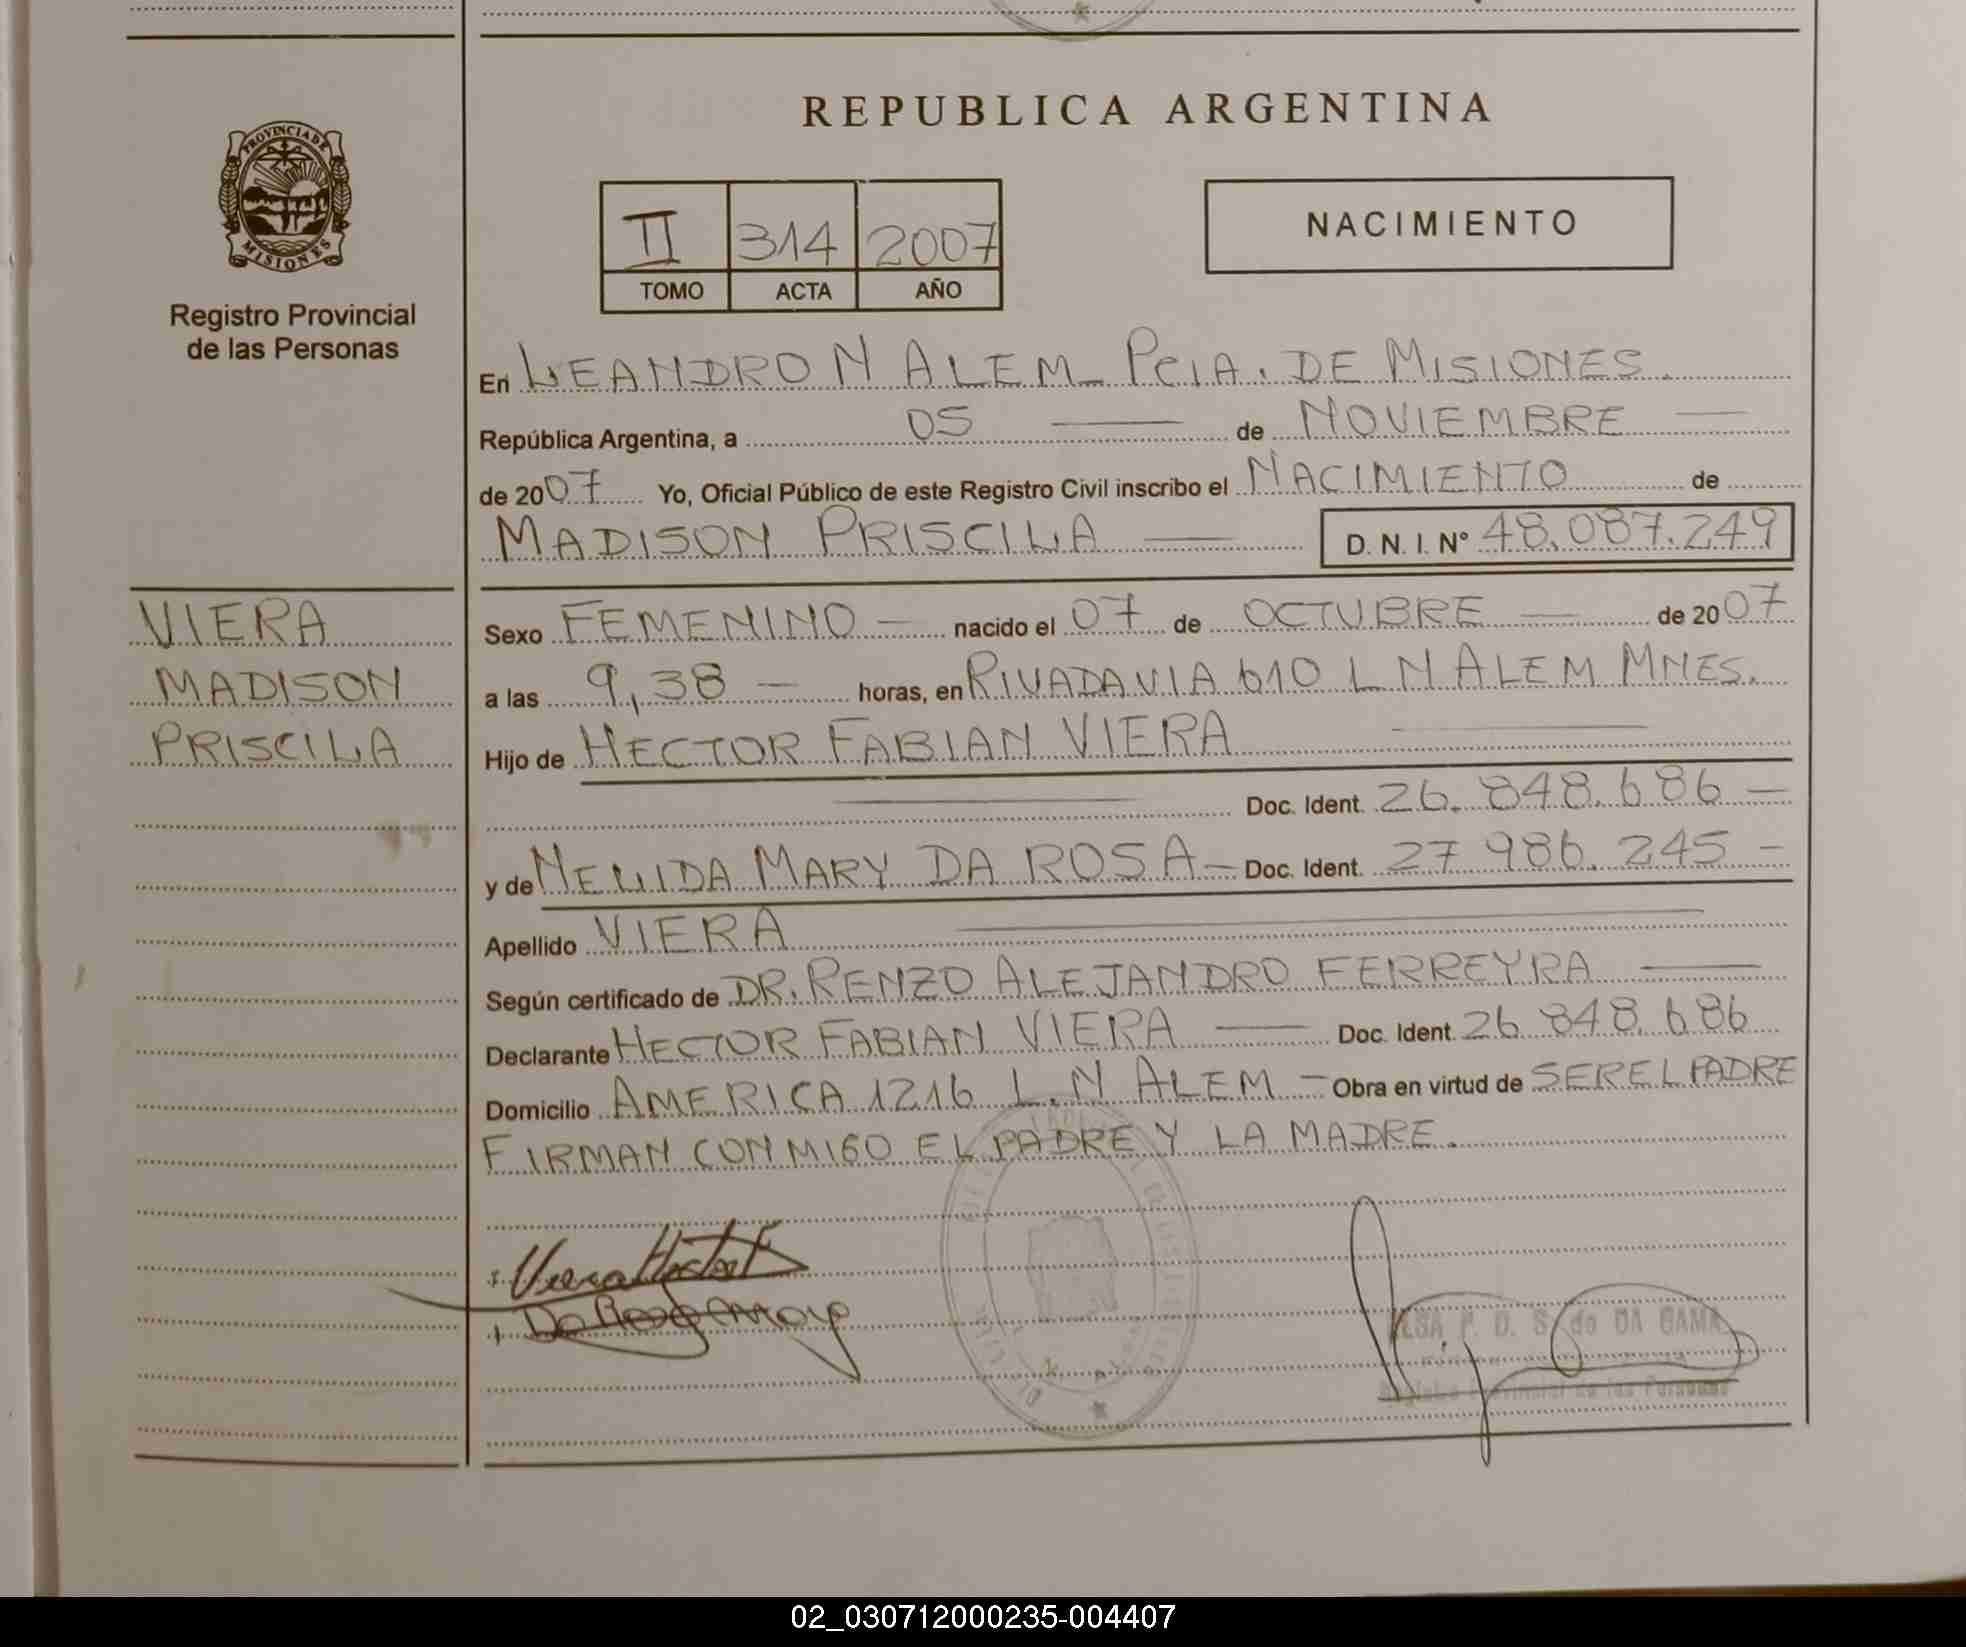 REPUBLICA ARGENTINA
PROVINCIA DE
MISIONES
Registro Provincial
de las Personas
II 314 2007
TOMO ACTA AÑO
NACIMIENTO
En LEANDRO N ALEM - PCIA. DE MISIONES.
República Argentina, a 05 — de NOVIEMBRE —
de 2007 Yo, Oficial Público de este Registro Civil inscribo el NACIMIENTO de
MADISON PRISCILA — D. N. I. N° 48.087.249
VIERA
MADISON
PRISCILA
Sexo FEMENINO — nacido el 07 de OCTUBRE — de 2007
a las 9,38 — horas, en RIVADAVIA 610 L N ALEM MNES.
Hijo de HECTOR FABIAN VIERA —
— Doc. Ident. 26.848.686 —
y de NELIDA MARY DA ROSA — Doc. Ident. 27 986.245 —
Apellido VIERA —
Según certificado de DR. RENZO ALEJANDRO FERREYRA —
Declarante HECTOR FABIAN VIERA — Doc. Ident. 26 848.686
Domicilio AMERICA 1216 L.N ALEM - Obra en virtud de SER EL PADRE
FIRMAN CONMIGO EL PADRE Y LA MADRE.
Viera Hector F
Da Rosa
P. D. S. de DA GAMA
Registro Provincial de las Personas
02_030712000235-004407